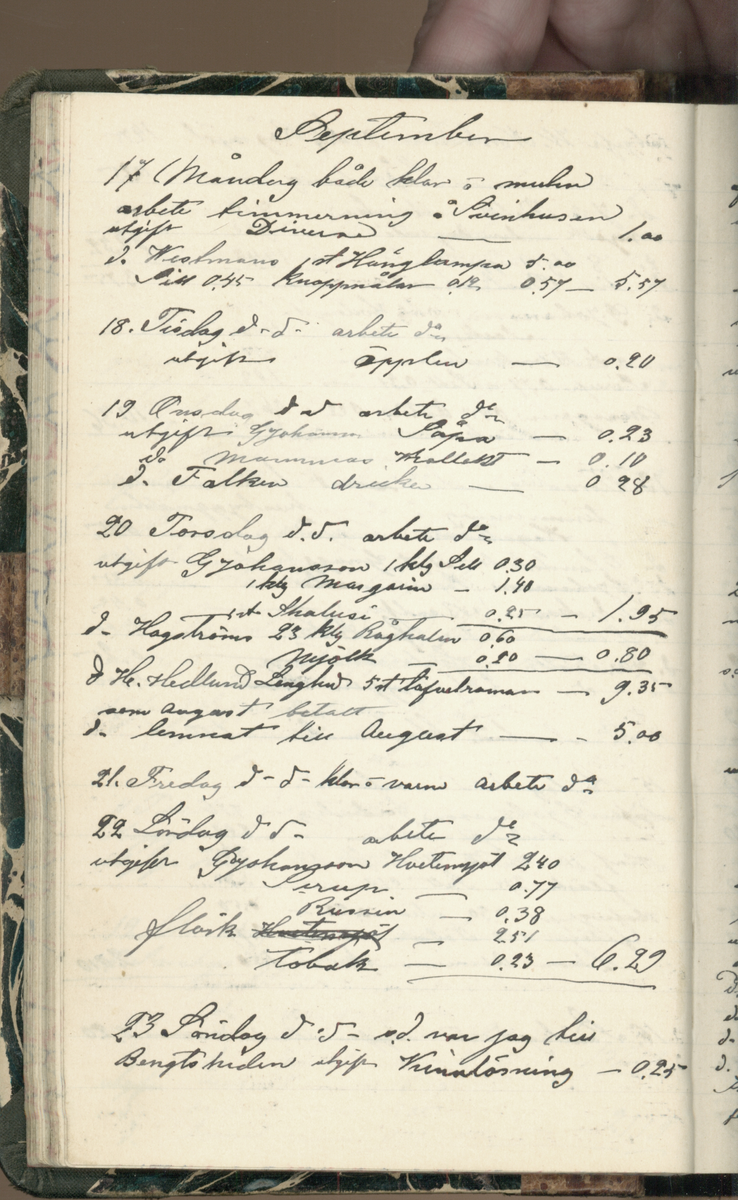 September
17 Måndag både klar o mulen
arbete timmerning å Svinhusen
utgift Diverse — 1.00
d. Westmans 1 st Hänglampa 5.00
Sill 0.45 Knappnålar 0.12 0.57 — 5.57
18. Tisdag d - d - arbete do
utgift äpplen — 0.20
19 Onsdag d d arbete do
utgift G Johanson Såpa — 0.23
do mammas Kollekt — 0.10
d. Falken dricka — 0 28
20 Torsdag d. d. arbete do
utgift G Johansson 1 klg Sill 0.30
1 klg Margarin — 1.40
1 st 0.25 — 1.95
d - Hagströms 23 klg Råghalm 0.60
Mjölk 0.20 — 0.80
d H. Hedlund 5 st — 9.35
som August betalt
d - lemnat till August — - 5.00
21. Fredag d - d - klar o varm arbete do
22 Lördag d d - arbete do
utgift G Johansson Hvetemjöl 2.40
Sirup — 0.77
Russin — 0.38
fläsk Hvetemjöl — 2.51
Tobak — 0.23 — 6.29
23 Söndag d - d - sd. var jag till
Bengtsheden utgift — 0.25